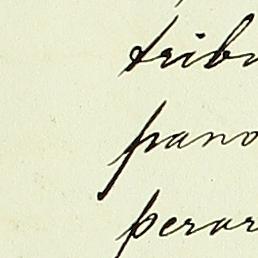 tribu
pano
perar